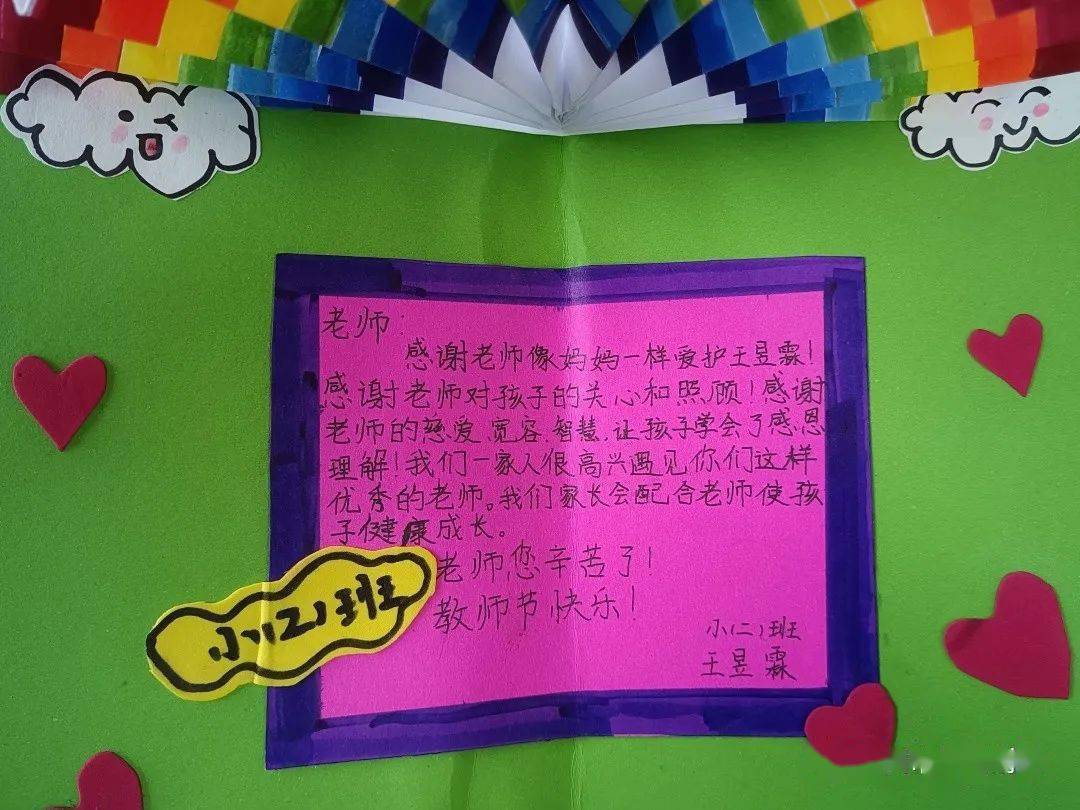 老师：
感谢老师像妈妈一样爱护王昱霖！
感谢老师对孩子的关心和照顾！感谢
老师的慈爱、宽容、智慧，让孩子学会了感恩
理解！我们一家人很高兴遇见你们这样
优秀的老师。我们家长会配合老师使孩
子健康成长。
老师您辛苦了！
教师节快乐！
小(二)班
王昱霖
小(2)班